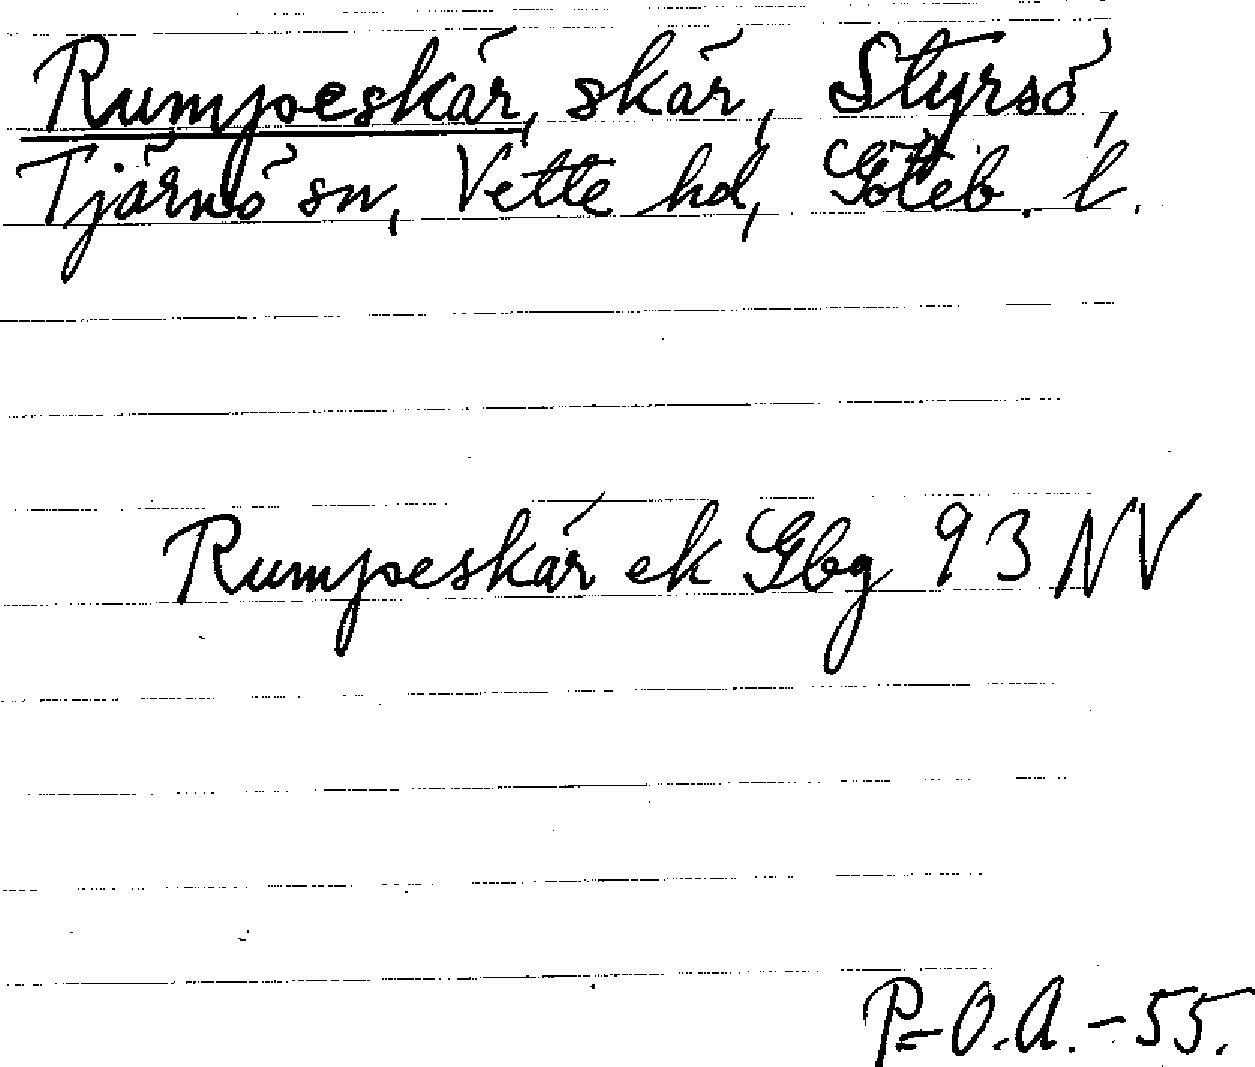 Rumpeskär, skär, Styrsö,
Tjärnö sn, Vette hd, Göteb. l.
Rumpeskär ek Gbg 93 NV
P-O.A.-55.